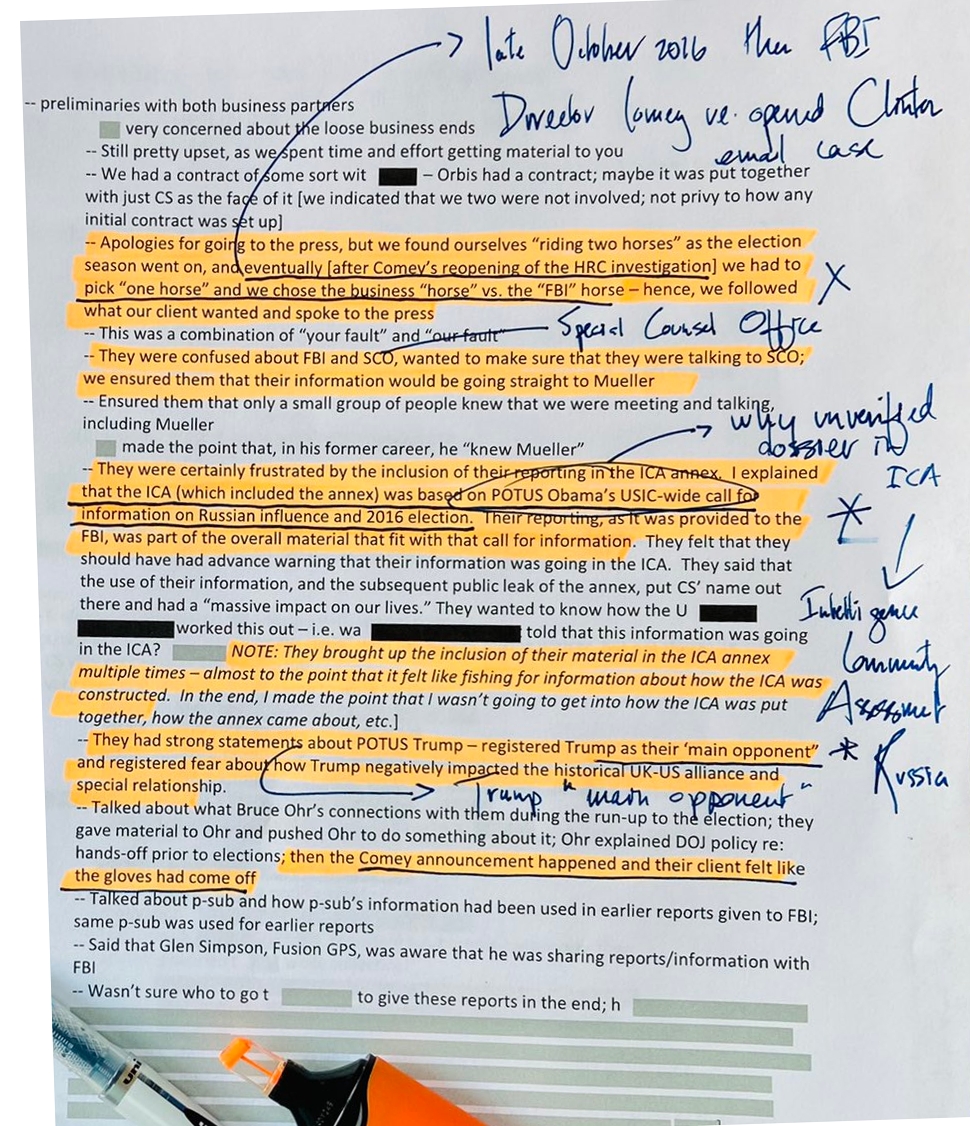 late October 2016 then FBI
Director Comey re-opened Clinton
email case
-- preliminaries with both business partners
very concerned about the loose business ends
-- Still pretty upset, as we spent time and effort getting material to you
-- We had a contract of some sort wit – Orbis had a contract; maybe it was put together
with just CS as the face of it [we indicated that we two were not involved; not privy to how any
initial contract was set up]
-- Apologies for going to the press, but we found ourselves “riding two horses” as the election
season went on, and eventually [after Comey’s reopening of the HRC investigation] we had to
pick “one horse” and we chose the business “horse” vs. the “FBI” horse – hence, we followed
X
what our client wanted and spoke to the press
-- This was a combination of “your fault” and “our fault”
Special Counsel Office
-- They were confused about FBI and SCO, wanted to make sure that they were talking to SCO;
we ensured them that their information would be going straight to Mueller
-- Ensured them that only a small group of people knew that we were meeting and talking,
including Mueller
why unverified
dossier in
ICA
made the point that, in his former career, he “knew Mueller”
-- They were certainly frustrated by the inclusion of their reporting in the ICA annex. I explained
that the ICA (which included the annex) was based on POTUS Obama’s USIC-wide call for
information on Russian influence and 2016 election. Their reporting, as it was provided to the
FBI, was part of the overall material that fit with that call for information. They felt that they
should have had advance warning that their information was going in the ICA. They said that
the use of their information, and the subsequent public leak of the annex, put CS’ name out
there and had a “massive impact on our lives.” They wanted to know how the U
worked this out – i.e. wa told that this information was going
in the ICA? NOTE: They brought up the inclusion of their material in the ICA annex
multiple times – almost to the point that it felt like fishing for information about how the ICA was
constructed. In the end, I made the point that I wasn’t going to get into how the ICA was put
together, how the annex came about, etc.]
Intelligence
Community
Assessment
Russia
-- They had strong statements about POTUS Trump – registered Trump as their ‘main opponent”
and registered fear about how Trump negatively impacted the historical UK-US alliance and
special relationship.
Trump "main opponent"
-- Talked about what Bruce Ohr’s connections with them during the run-up to the election; they
gave material to Ohr and pushed Ohr to do something about it; Ohr explained DOJ policy re:
hands-off prior to elections; then the Comey announcement happened and their client felt like
the gloves had come off
-- Talked about p-sub and how p-sub’s information had been used in earlier reports given to FBI;
same p-sub was used for earlier reports
-- Said that Glen Simpson, Fusion GPS, was aware that he was sharing reports/information with
FBI
-- Wasn’t sure who to go t to give these reports in the end; h
uni